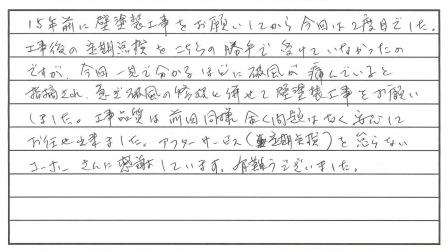 15年前に壁塗装工事をお願いしてから今回は2度目でした。
工事後の定期点検をこちらの勝手で受けていなかったの
ですが、今回一見で分かるほどに破風が痛んでいると
指摘され、急ぎ破風の修繕と併せて壁塗装工事をお願い
しました。工事品質は前回同様全く問題はなく安心して
お任せ出来ました。アフターサービス(定期点検)を怠らない
ユーホーさんに感謝しています。有難うございました。